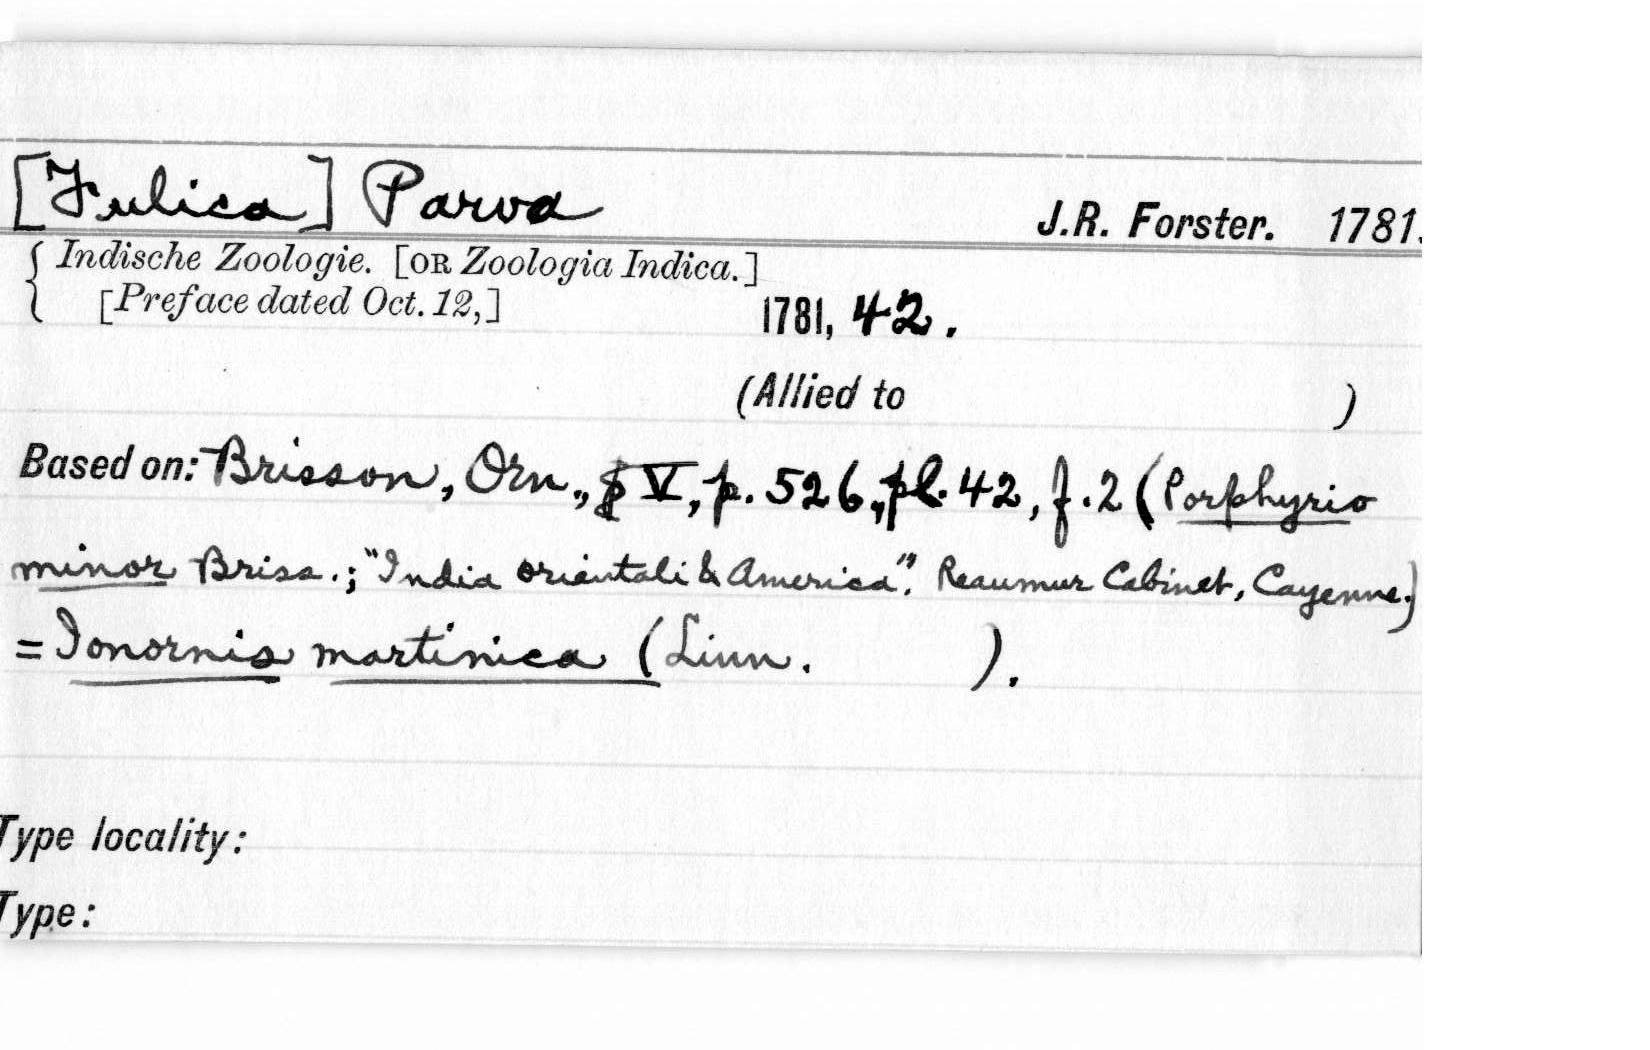 [Fulica] Parva J.R. Forster. 1781.
Indische Zoologie. [OR Zoologia Indica.]
[Preface dated Oct. 12,] 1781, 42.
(Allied to )
Based on: Brisson, Orn., V, p. 526, pl. 42, f. 2 (Porphyrio
minor Briss.; "India orientali & America". Reaumur Cabinet, Cayenne.)
= Ionornis martinica (Linn. ).
Type locality:
Type: